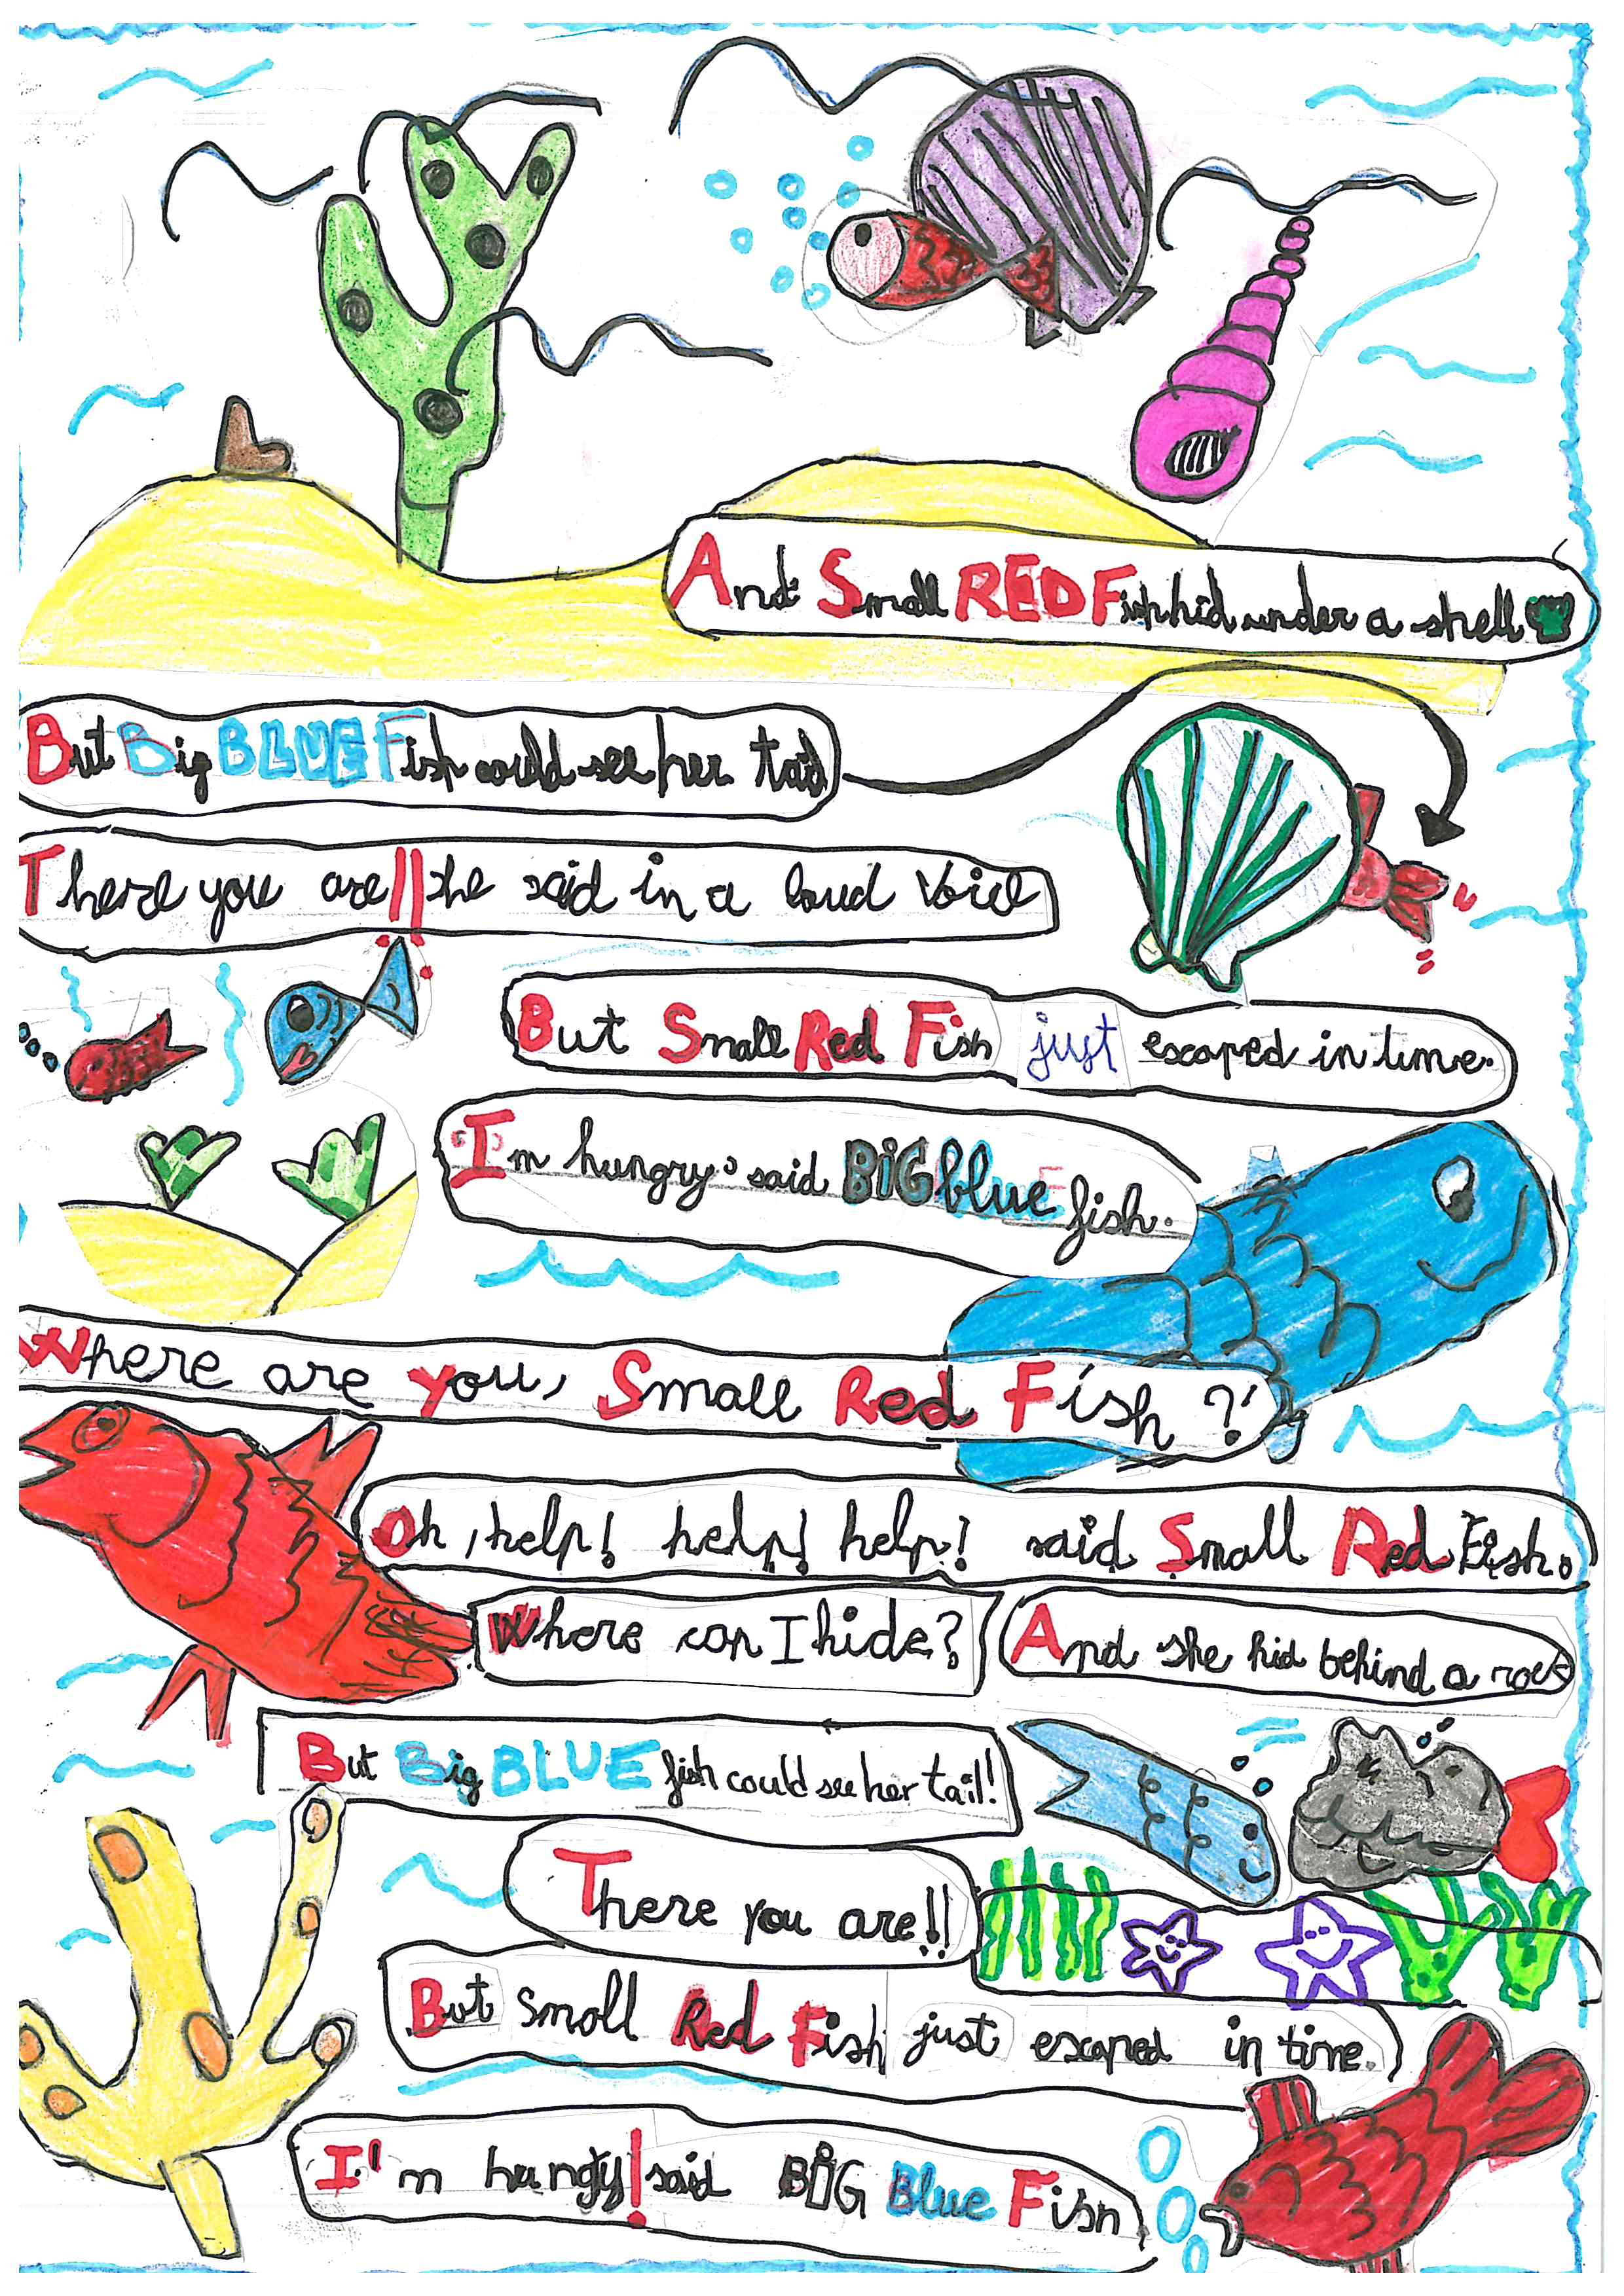 And Small RED Fish hid under a shell
But Big BLUE Fish could see her tail
There you are!! she said in a loud voice
But Small Red Fish just escaped in time.
"I'm hungry" said BiG blue fish.
Where are you, Small Red Fish ?
Oh, help! help! help! said Small Red Fish.
Where can I hide?
And she hid behind a rock
But Big BLUE fish could see her tail!
There you are!!
But small Red Fish just escaped in time.
I'm hungty! said BiG Blue Fish